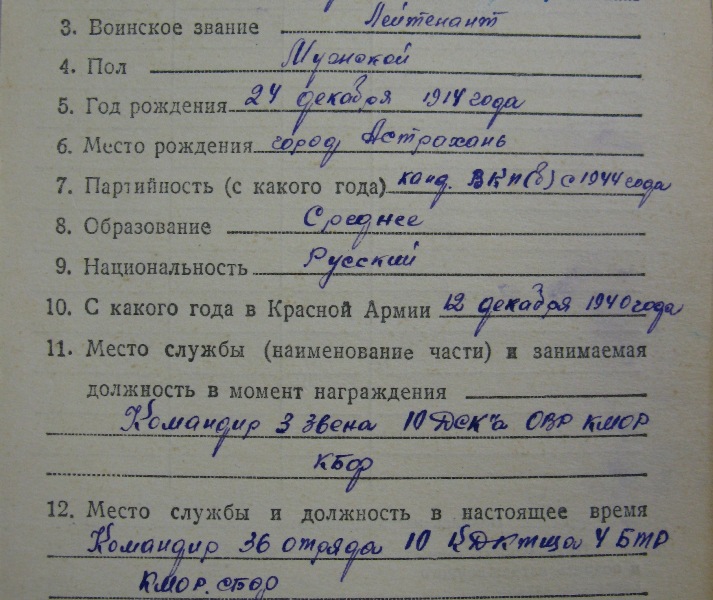 3. Воинское звание Лейтенант
4. Пол Мужской
5. Год рождения 24 декабря 1914 года
6. Место рождения город Астрахань
7. Партийность (с какого года) канд. ВКП(б) с 1944 года
8. Образование Среднее
9. Национальность Русский
10. С какого года в Красной Армии 12 декабря 1940 года
11. Место службы (наименование части) и занимаемая
должность в момент награждения
Командир 3 звена 10 ДСК'а ОВР КМОР
КБФ
12. Место службы и должность в настоящее время
Командир 36 отряда 10 4 БТР
КМОР